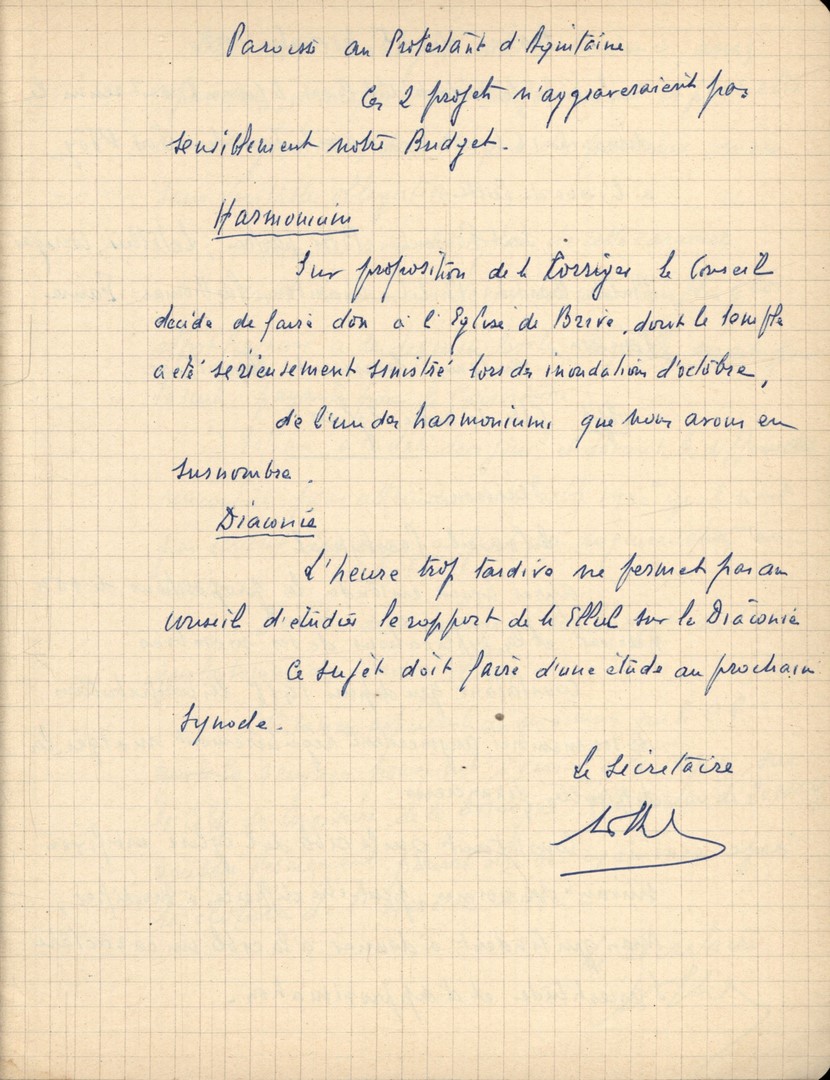 Paroisse au Protestant d'Aquitaine
Ces 2 projets n'aggraveraient pas
sensiblement notre Budget.
Harmonium
Sur proposition de M. le Conseil
décide de faire don à l'Eglise de Brive, dont le temple
a été sérieusement sinistré lors des inondations d'octobre,
de l'un des harmoniums que nous avons en
surnombre.
Diaconie
L'heure trop tardive ne permet pas au
conseil d'étudier le rapport de M. Ellul sur la Diaconie
Ce sujet doit faire d'une étude au prochain
synode.
Le secrétaire